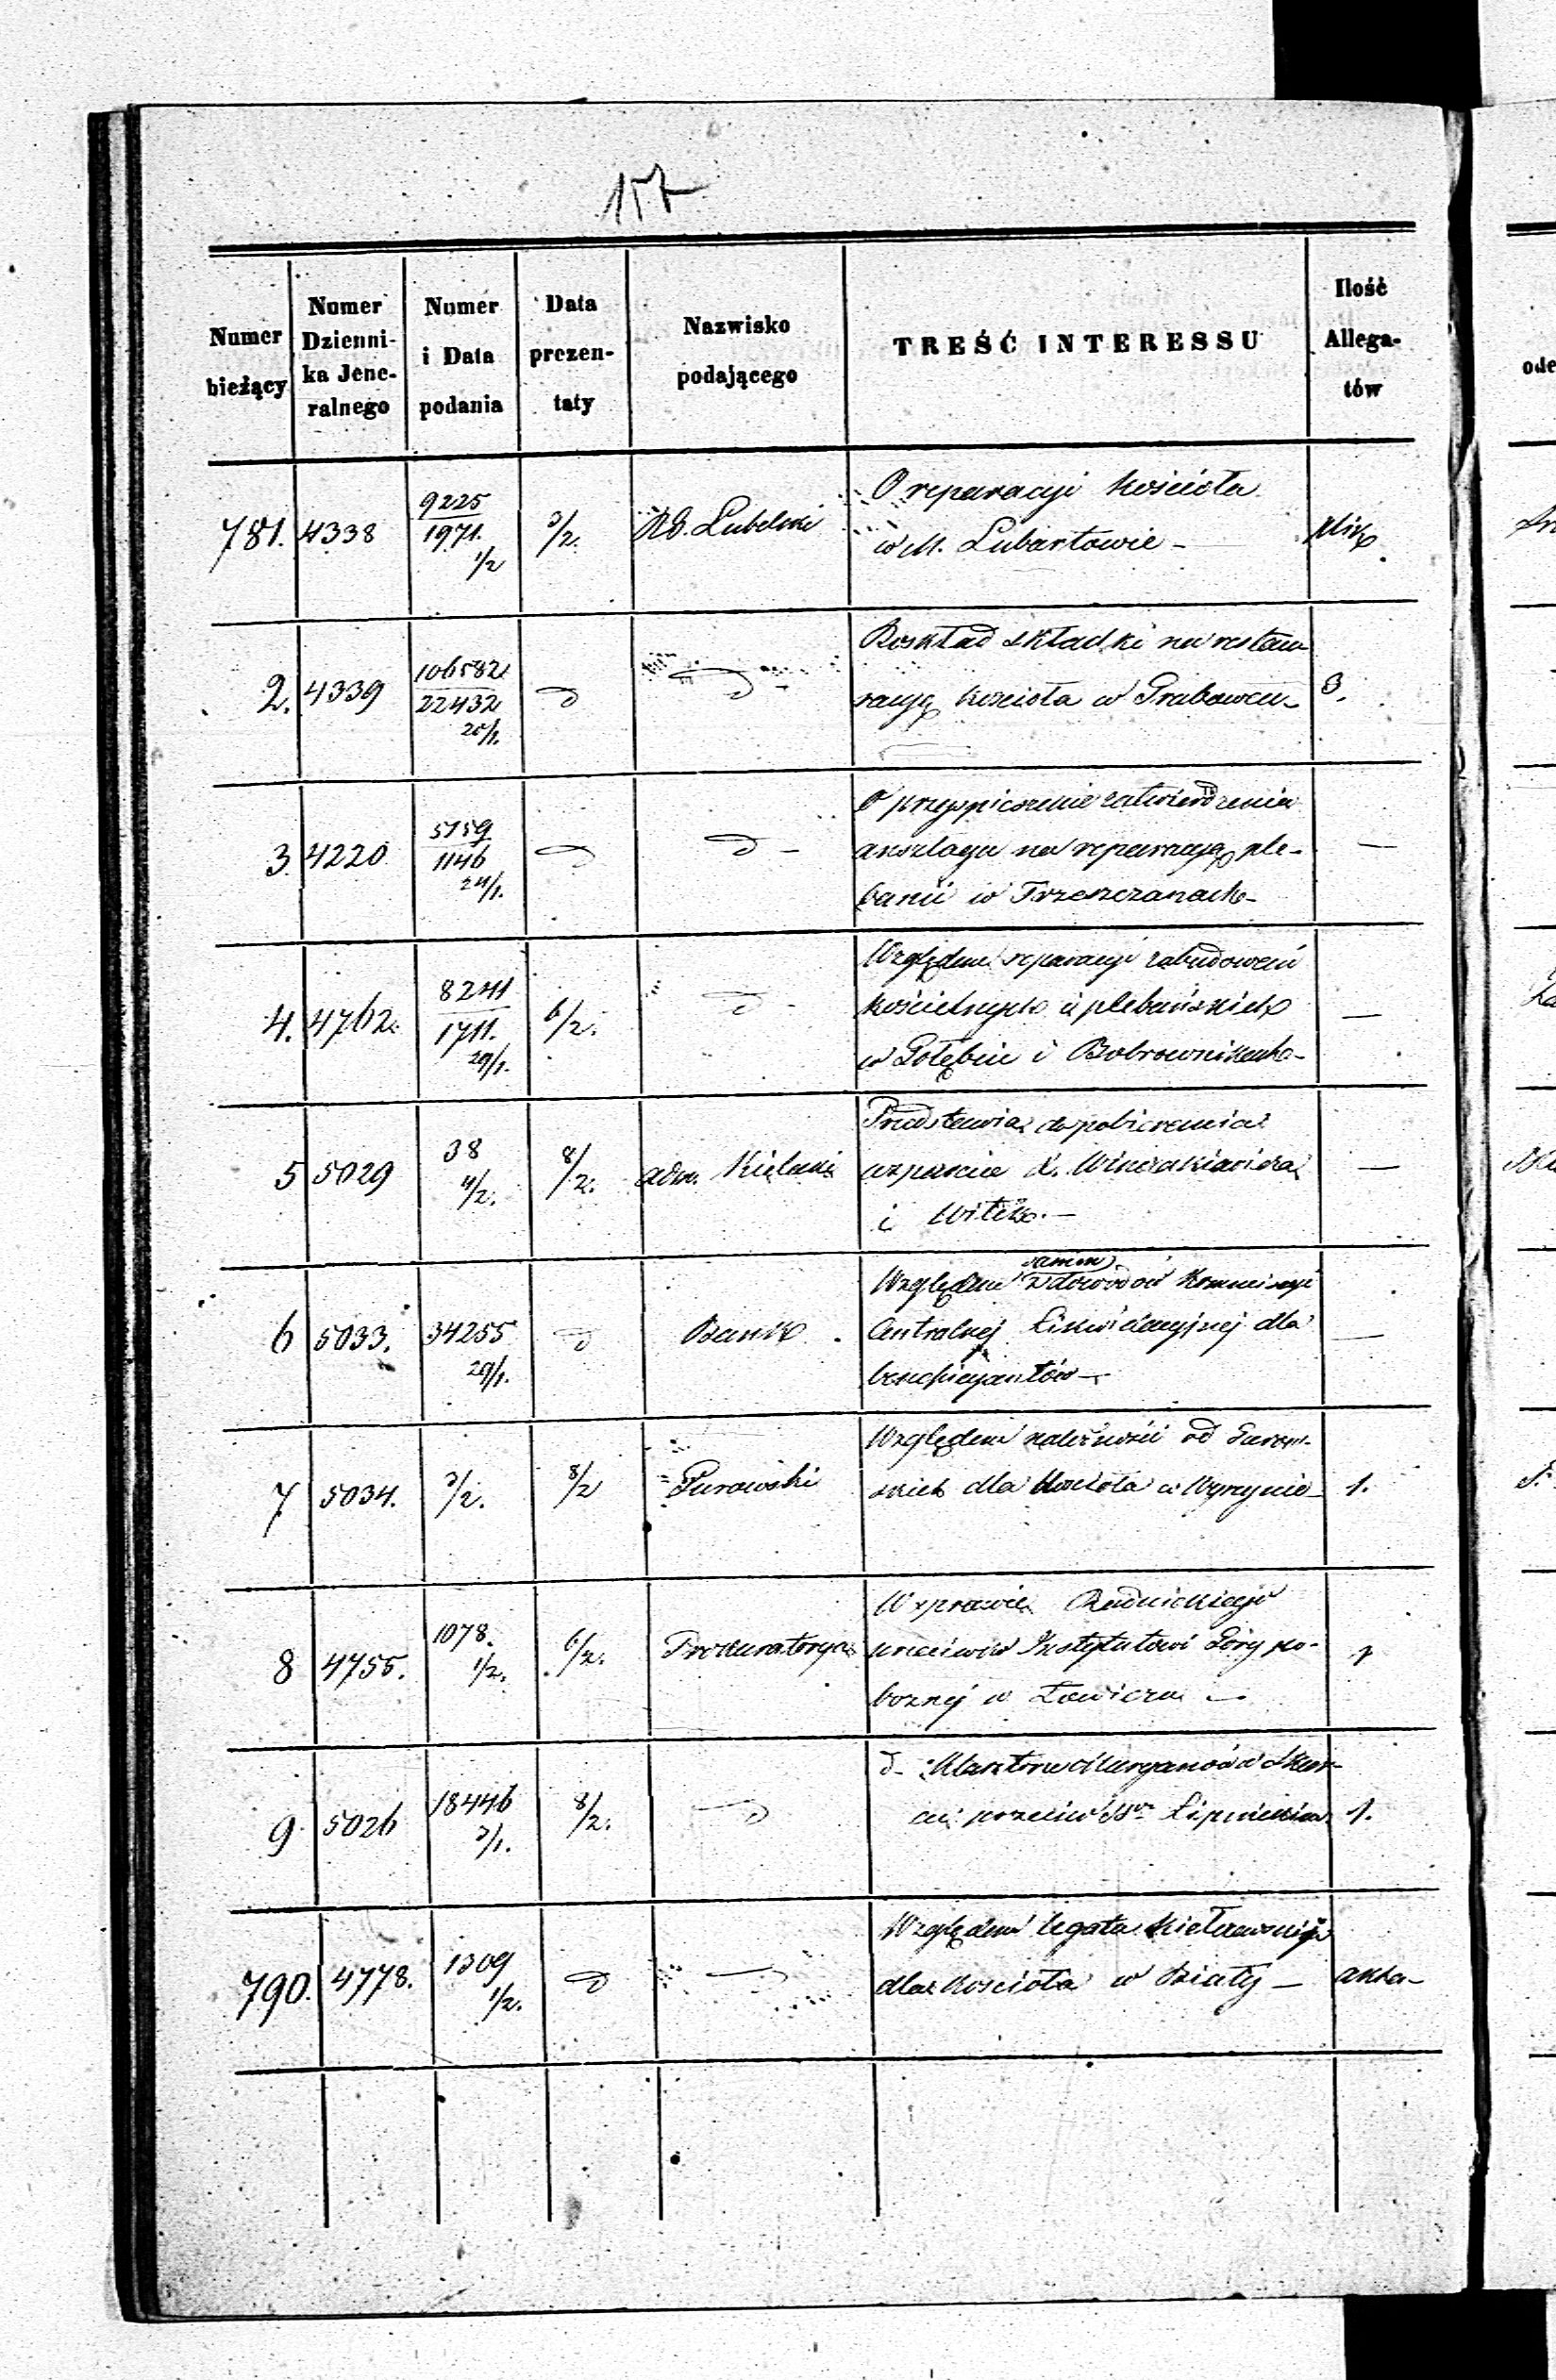 157
Numer bieżący
Numer Dzienni- ka Jene- ralnego
Numer i Data podania
Data prezen- taty
Nazwisko podającego
TREŚĆ INTERESSU
Ilość Allega- tów
781. 4338 9225/1971. 1/2 3/2. RG. Lubelski
O reparacyi Kościoła
w M. Lubartowie -
2. 4339 106582/22432 d d 3.
Roskład składki na restau-
racyę kościoła w Grabowcu -
3. 4220 5759/1146 24/1. d d - —
O przyspieszenie zatwierdzenia
anszlagu na reparacyą ple-
banii w Trzeszczanach -
4. 4762. 8241/1711. 29/1. 6/2. d - —
Względem reparacyi zabudowań
kościelnych i plebańskich
w Gołębiu i Bobrownikach -
5 5029 38 4/2. 8/2. adm. Kielecki —
Przedstawia do pobierania
wsparcia X.
i
6 5033. 34255 29/1. d Bank —
Względem dowodów Kommissyi
Centralnej Likwidacyjnej dla
beneficyantów -
7 5034. 3/2. 8/2 Gurowski 1.
Względem należności od Gurow-
skich dla kościoła w
8 4755. 1078. 1/2. 6/2. Prokuratorya 1
W sprawie Rudnickiego
przeciwko Instytutowi Góry po-
bożnej w Łowiczu -
9. 5026 18446 3/1. 8/2. d 1.
d - Klasztoru
przeciw Lipnickim
790. 4778. 1309 1/2. d akta -
Względem legatu
dla Kościoła w Biały -